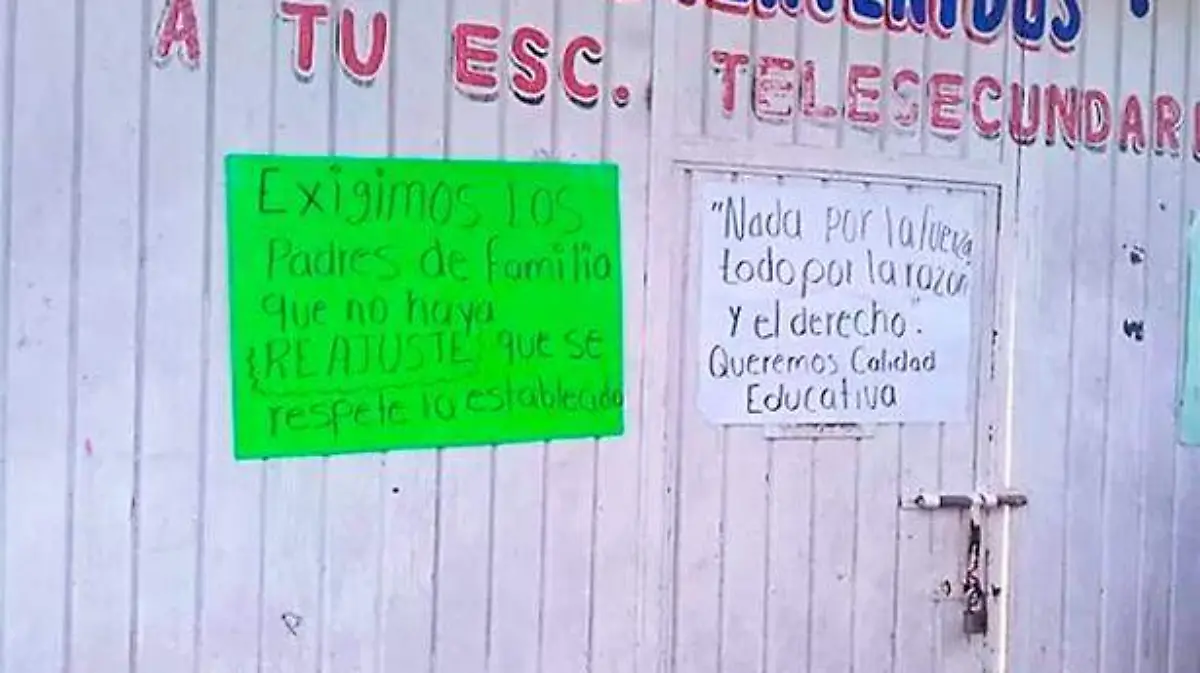 A TU ESC. TELESECUNDAR
Exigimos los
Padres de familia
que no haya
REAJUSTE que se
respete lo establecido
"Nada por la fuerza
todo por la razon
y el derecho".
Queremos Calidad
Educativa